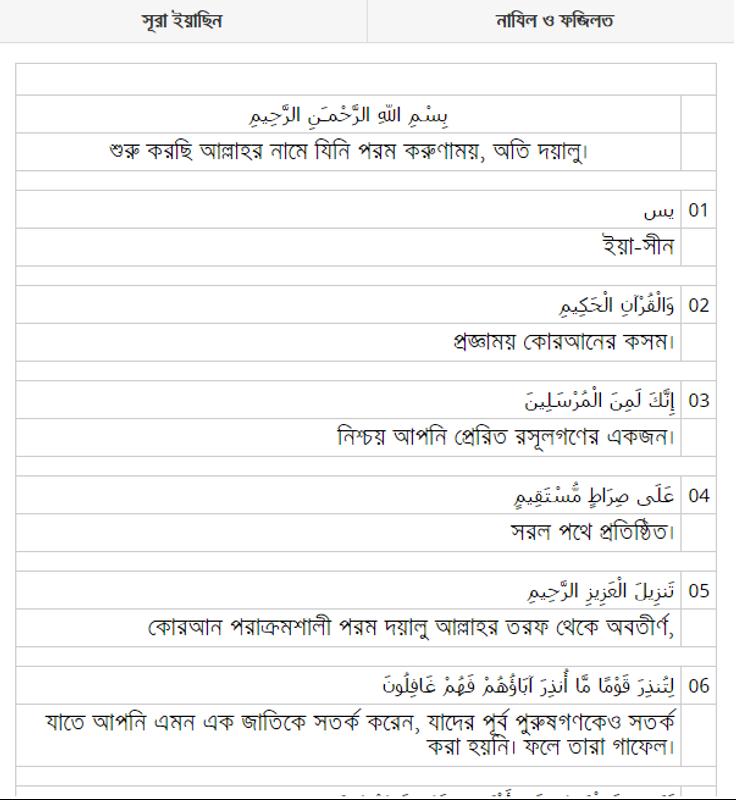 সূরা ইয়াছিন
নাযিল ও ফজিলত
بِسْمِ اللّهِ الرَّحْمـَنِ الرَّحِيمِ
শুরু করছি আল্লাহর নামে যিনি পরম করুণাময়, অতি দয়ালু।
01 يس
ইয়া-সীন
02 وَالْقُرْآنِ الْحَكِيمِ
প্রজ্ঞাময় কোরআনের কসম।
03 إِنَّكَ لَمِنَ الْمُرْسَلِينَ
নিশ্চয় আপনি প্রেরিত রসূলগণের একজন।
04 عَلَى صِرَاطٍ مُّسْتَقِيمٍ
সরল পথে প্রতিষ্ঠিত।
05 تَنزِيلَ الْعَزِيزِ الرَّحِيمِ
কোরআন পরাক্রমশালী পরম দয়ালু আল্লাহর তরফ থেকে অবতীর্ণ,
06 لِتُنذِرَ قَوْمًا مَّا أُنذِرَ آبَاؤُهُمْ فَهُمْ غَافِلُونَ
যাতে আপনি এমন এক জাতিকে সতর্ক করেন, যাদের পূর্ব পুরুষগণকেও সতর্ক
করা হয়নি। ফলে তারা গাফেল।